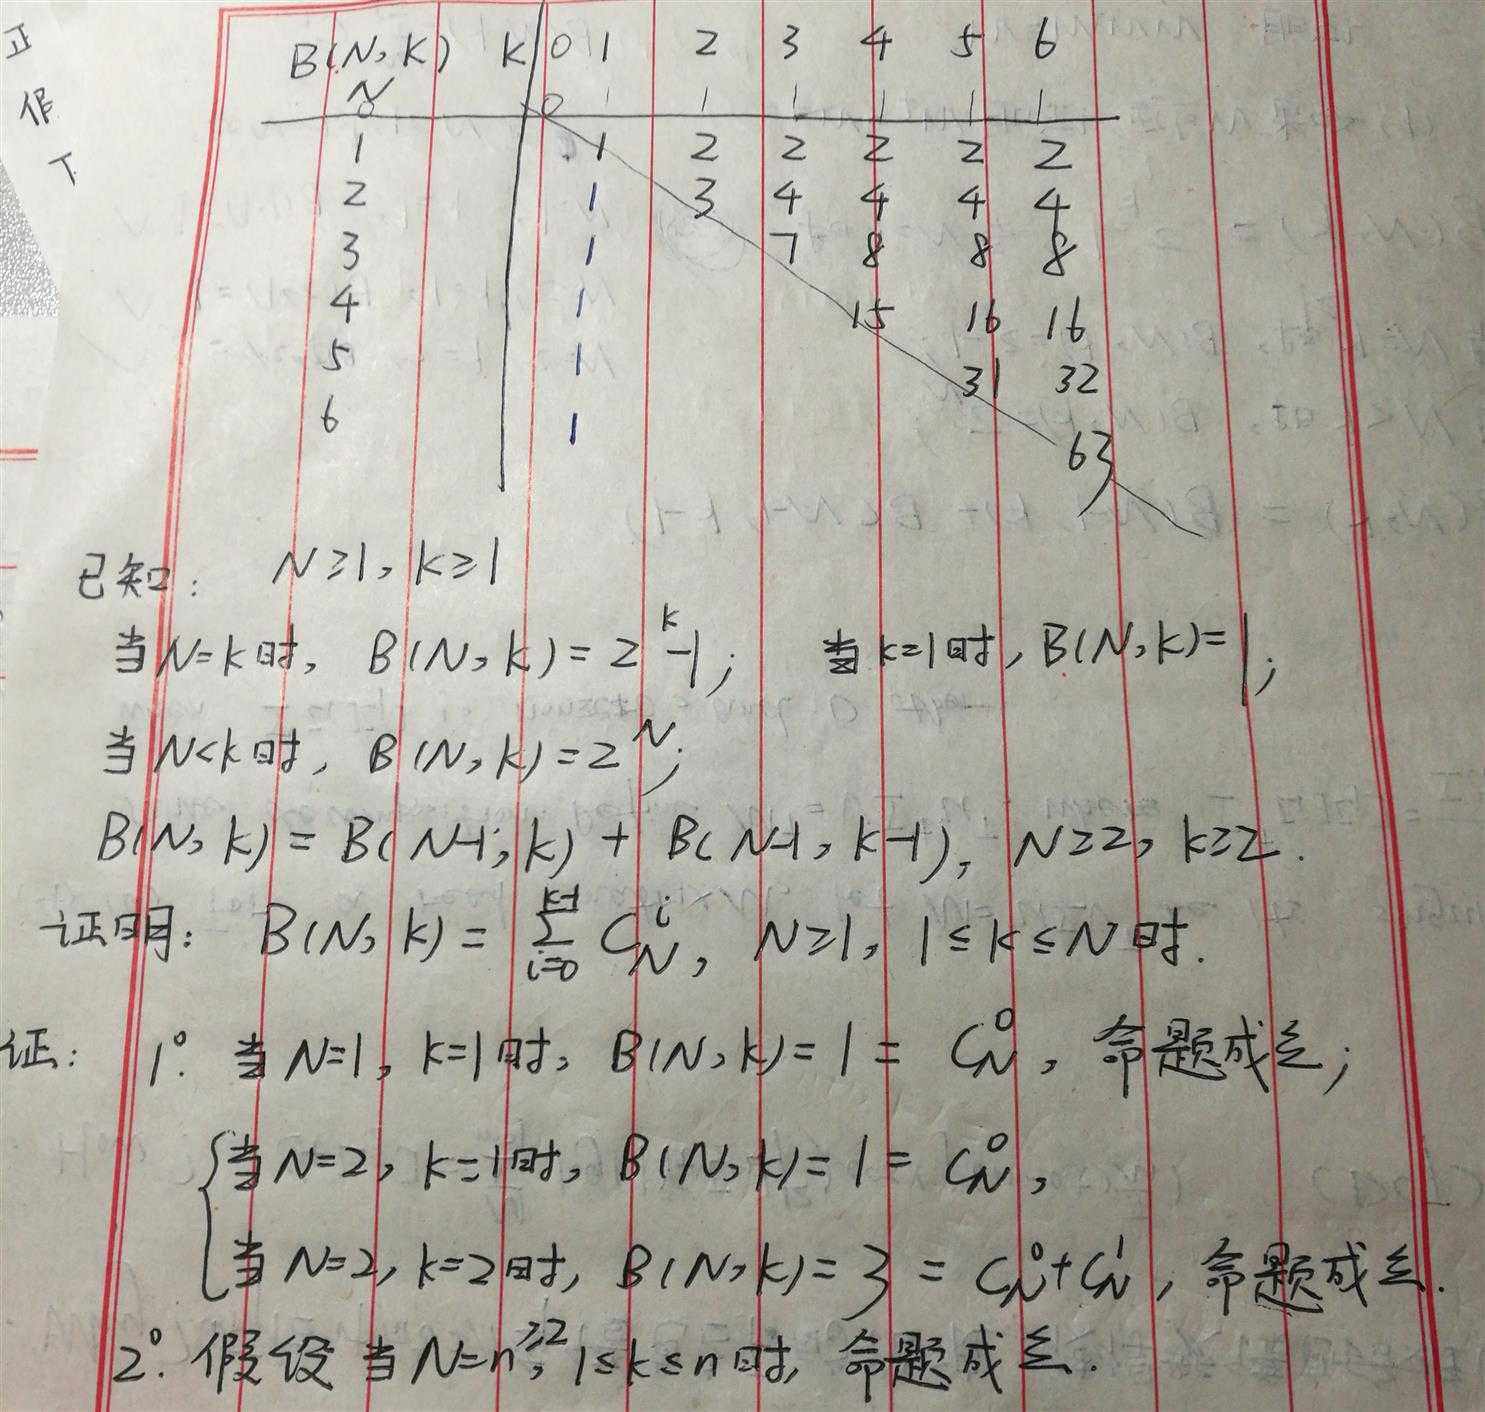 正
假
下
B(N,K) K 0 1 2 3 4 5 6
N
0 0 1 1 1 1 1 1
1 1 2 2 2 2 2
2 1 3 4 4 4 4
3 1 7 8 8 8
4 1 15 16 16
5 1 31 32
6 1 63
已知: N≥1, k≥1
当N=k时, B(N,k)=2^k-1; 当k=1时, B(N,k)=1;
当N<k时, B(N,k)=2^N;
B(N,k) = B(N-1,k) + B(N-1,k-1), N≥2, k≥2.
证明: B(N,k) = \sum_{i=0}^{k-1} C_N^i, N≥1, 1≤k≤N时.
证: 1°. 当N=1, k=1时, B(N,k)=1 = C_N^0, 命题成立;
当N=2, k=1时, B(N,k)=1 = C_N^0,
当N=2, k=2时, B(N,k)=3 = C_N^0+C_N^1, 命题成立.
2°. 假设当N=n≥2, 1≤k≤n时, 命题成立.